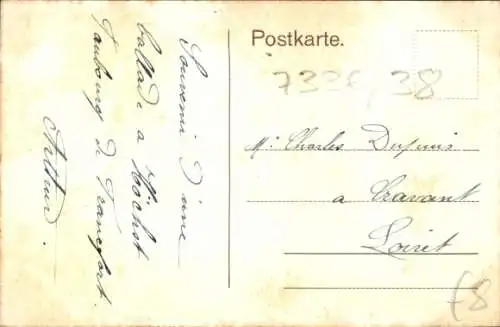 Postkarte.
7326/38
Mr. Charles Dupuis
a Cravant
Loiret
Souvenir D'une
ballade a Hochst
Faubourg de Francfort.
Arthur.
£8